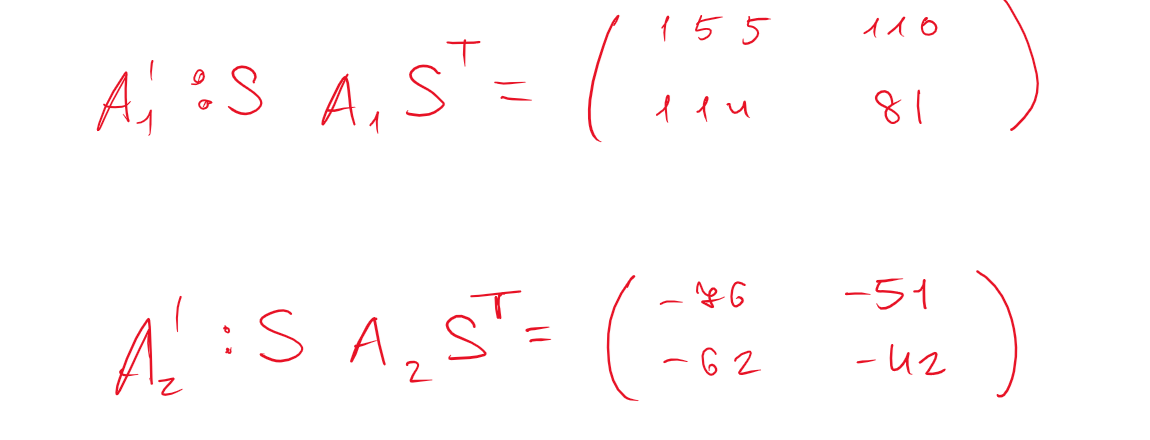 A₁' : S A₁ Sᵀ = ( 155 110
114 81 )
A₂' : S A₂ Sᵀ = ( -76 -51
-62 -42 )